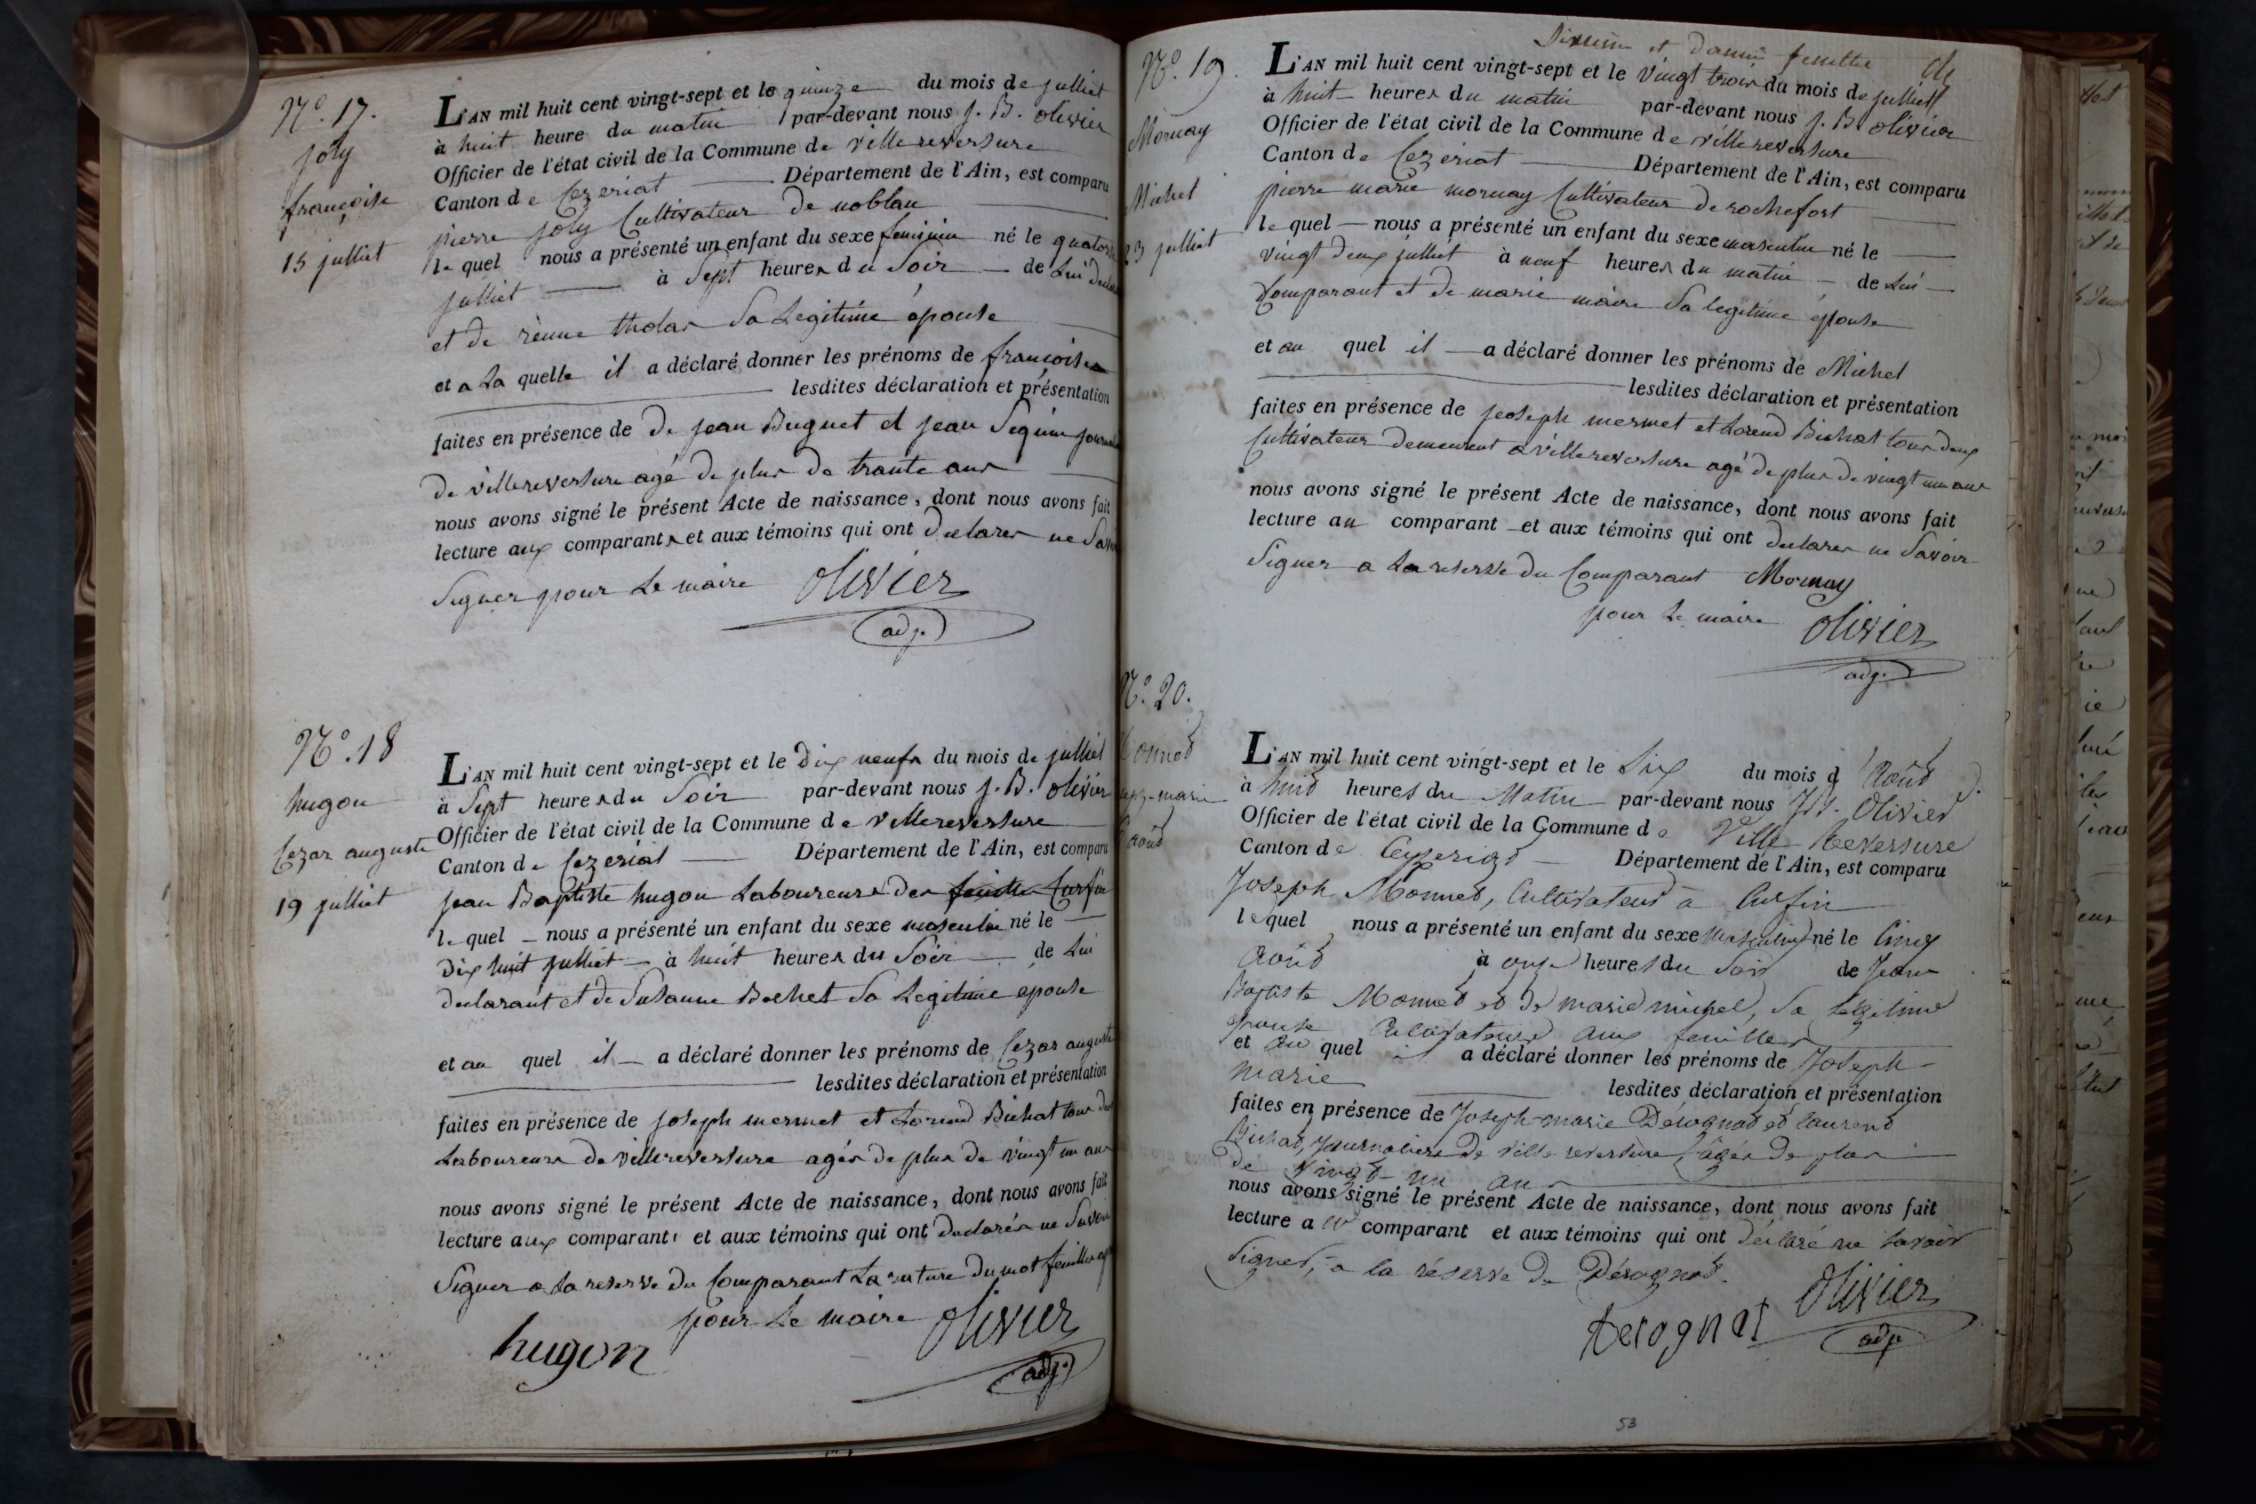 N.º 17.
joly
françoise
15 julliet
L'AN mil huit cent vingt-sept et le quinze du mois de julliet
à huit heure du matin par-devant nous J. B. olivier
Officier de l'état civil de la Commune de villereversure
Canton de Cezeriat Département de l'Ain, est comparu
pierre joly Cultivateur de noblau
le quel nous a présenté un enfant du sexe feminin né le quatorze
julliet à Sept heures du Soir de Lui
et de rènne tholas Sa Legitime épouse
et a La quelle il a déclaré donner les prénoms de françoise
lesdites déclaration et présentation
faites en présence de De jean Buguet et jean Seguin
de villereversure agé de plus de trante ans
nous avons signé le présent Acte de naissance, dont nous avons fait
lecture aux comparants et aux témoins qui ont declarer ne
Signer pour Le maire Olivier
adj.
N.º 18
hugon
Cezar auguste
19 julliet
L'AN mil huit cent vingt-sept et le dix neufs du mois de julliet
à Sept heures du Soir par-devant nous J. B. olivier
Officier de l'état civil de la Commune de villereversure
Canton de Cezeriat Département de l'Ain, est comparu
jean Baptiste hugon Laboureurs des Curfin
le quel nous a présenté un enfant du sexe masculin né le
dix huit julliet à huit heures du Soir de Lui
declarant et de Susanne Bochet Sa Legitime epouse
et au quel il a déclaré donner les prénoms de Cezar auguste
lesdites déclaration et présentation
faites en présence de joseph mermet et Lorend Bichat tous
Laboureurs de villereversure agés de plus de vingt un ans
nous avons signé le présent Acte de naissance, dont nous avons fait
lecture aux comparants et aux témoins qui ont declarés ne Savoir
Signer a La reserve du Comparant La rature du mot feuilles
pour Le maire Olivier
hugon
adj.
Sixieme et derniere feuille
N.º 19.
Mornay
Michel
23 julliet
L'AN mil huit cent vingt-sept et le vingt trois du mois de julliet
à huit heures du matin par-devant nous J. B. olivier
Officier de l'état civil de la Commune de villereversure
Canton de Cezeriat Département de l'Ain, est comparu
pierre marie mornay Cultivateur de rochefort
le quel nous a présenté un enfant du sexe masculin né le
vingt deux julliet à neuf heures du matin de Lui
Comparant et de marie maire Sa legitime épouse
et au quel il a déclaré donner les prénoms de Michel
lesdites déclaration et présentation
faites en présence de joseph mermet et Lorend Bichat tous deux
Cultivateurs demeurent a villereversure agé de plus de vingt un ans
nous avons signé le présent Acte de naissance, dont nous avons fait
lecture au comparant et aux témoins qui ont declarer ne Savoir
Signer a La reserve du Comparant Mornay
pour Le maire Olivier
adj.
N.º 20.
Monnet
marie
aoûd
L'AN mil huit cent vingt-sept et le Six du mois d' Août
à huit heures du Matin par-devant nous Olivier
Officier de l'état civil de la Commune de Ville Reversure
Canton de Ceyzeriat Département de l'Ain, est comparu
Joseph Monnet, Cultivateur à Curfin
le quel nous a présenté un enfant du sexe masculin né le Cinq
Août à onze heures du Soir de Jean
Baptiste Monnet et de marie michel, Sa Legitime
epouse Cultivateurs aux feuilles
et au quel il a déclaré donner les prénoms de Joseph-
Marie lesdites déclaration et présentation
faites en présence de Joseph-marie Dérognat et laurend
Bichat, Journaliers de ville reversure, âgés de plus
de vingt-un ans
nous avons signé le présent Acte de naissance, dont nous avons fait
lecture au comparant et aux témoins qui ont déclaré ne savoir
Signer, à la réserve de Dérognat.
Derognat Olivier
adj
53